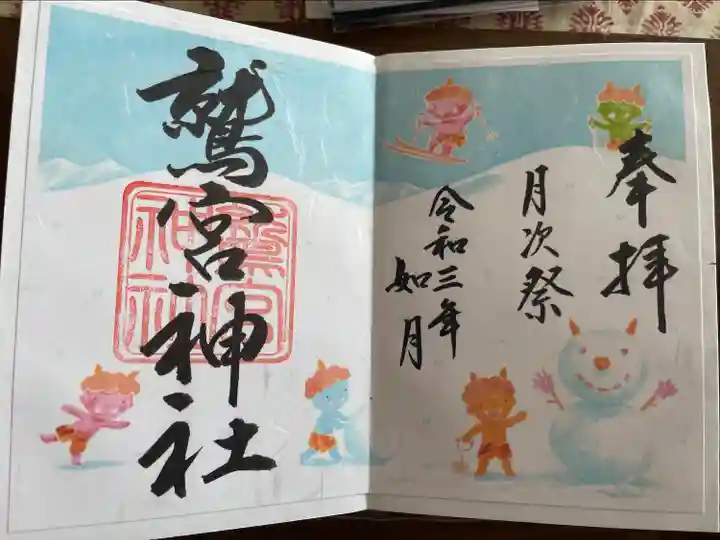 奉拝
月次祭
令和三年
如月
鷲宮神社
鷲宮
神社